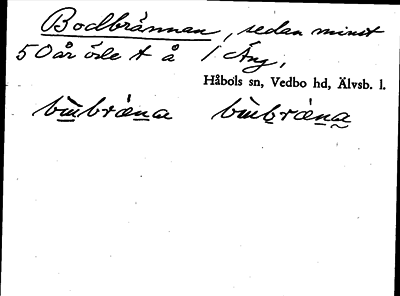 Bodbrännan, sedan minst
50 år öde t å 1 Äng,
Håbols sn, Vedbo hd, Älvsb. l.
bùbrǽna bùbrǽna